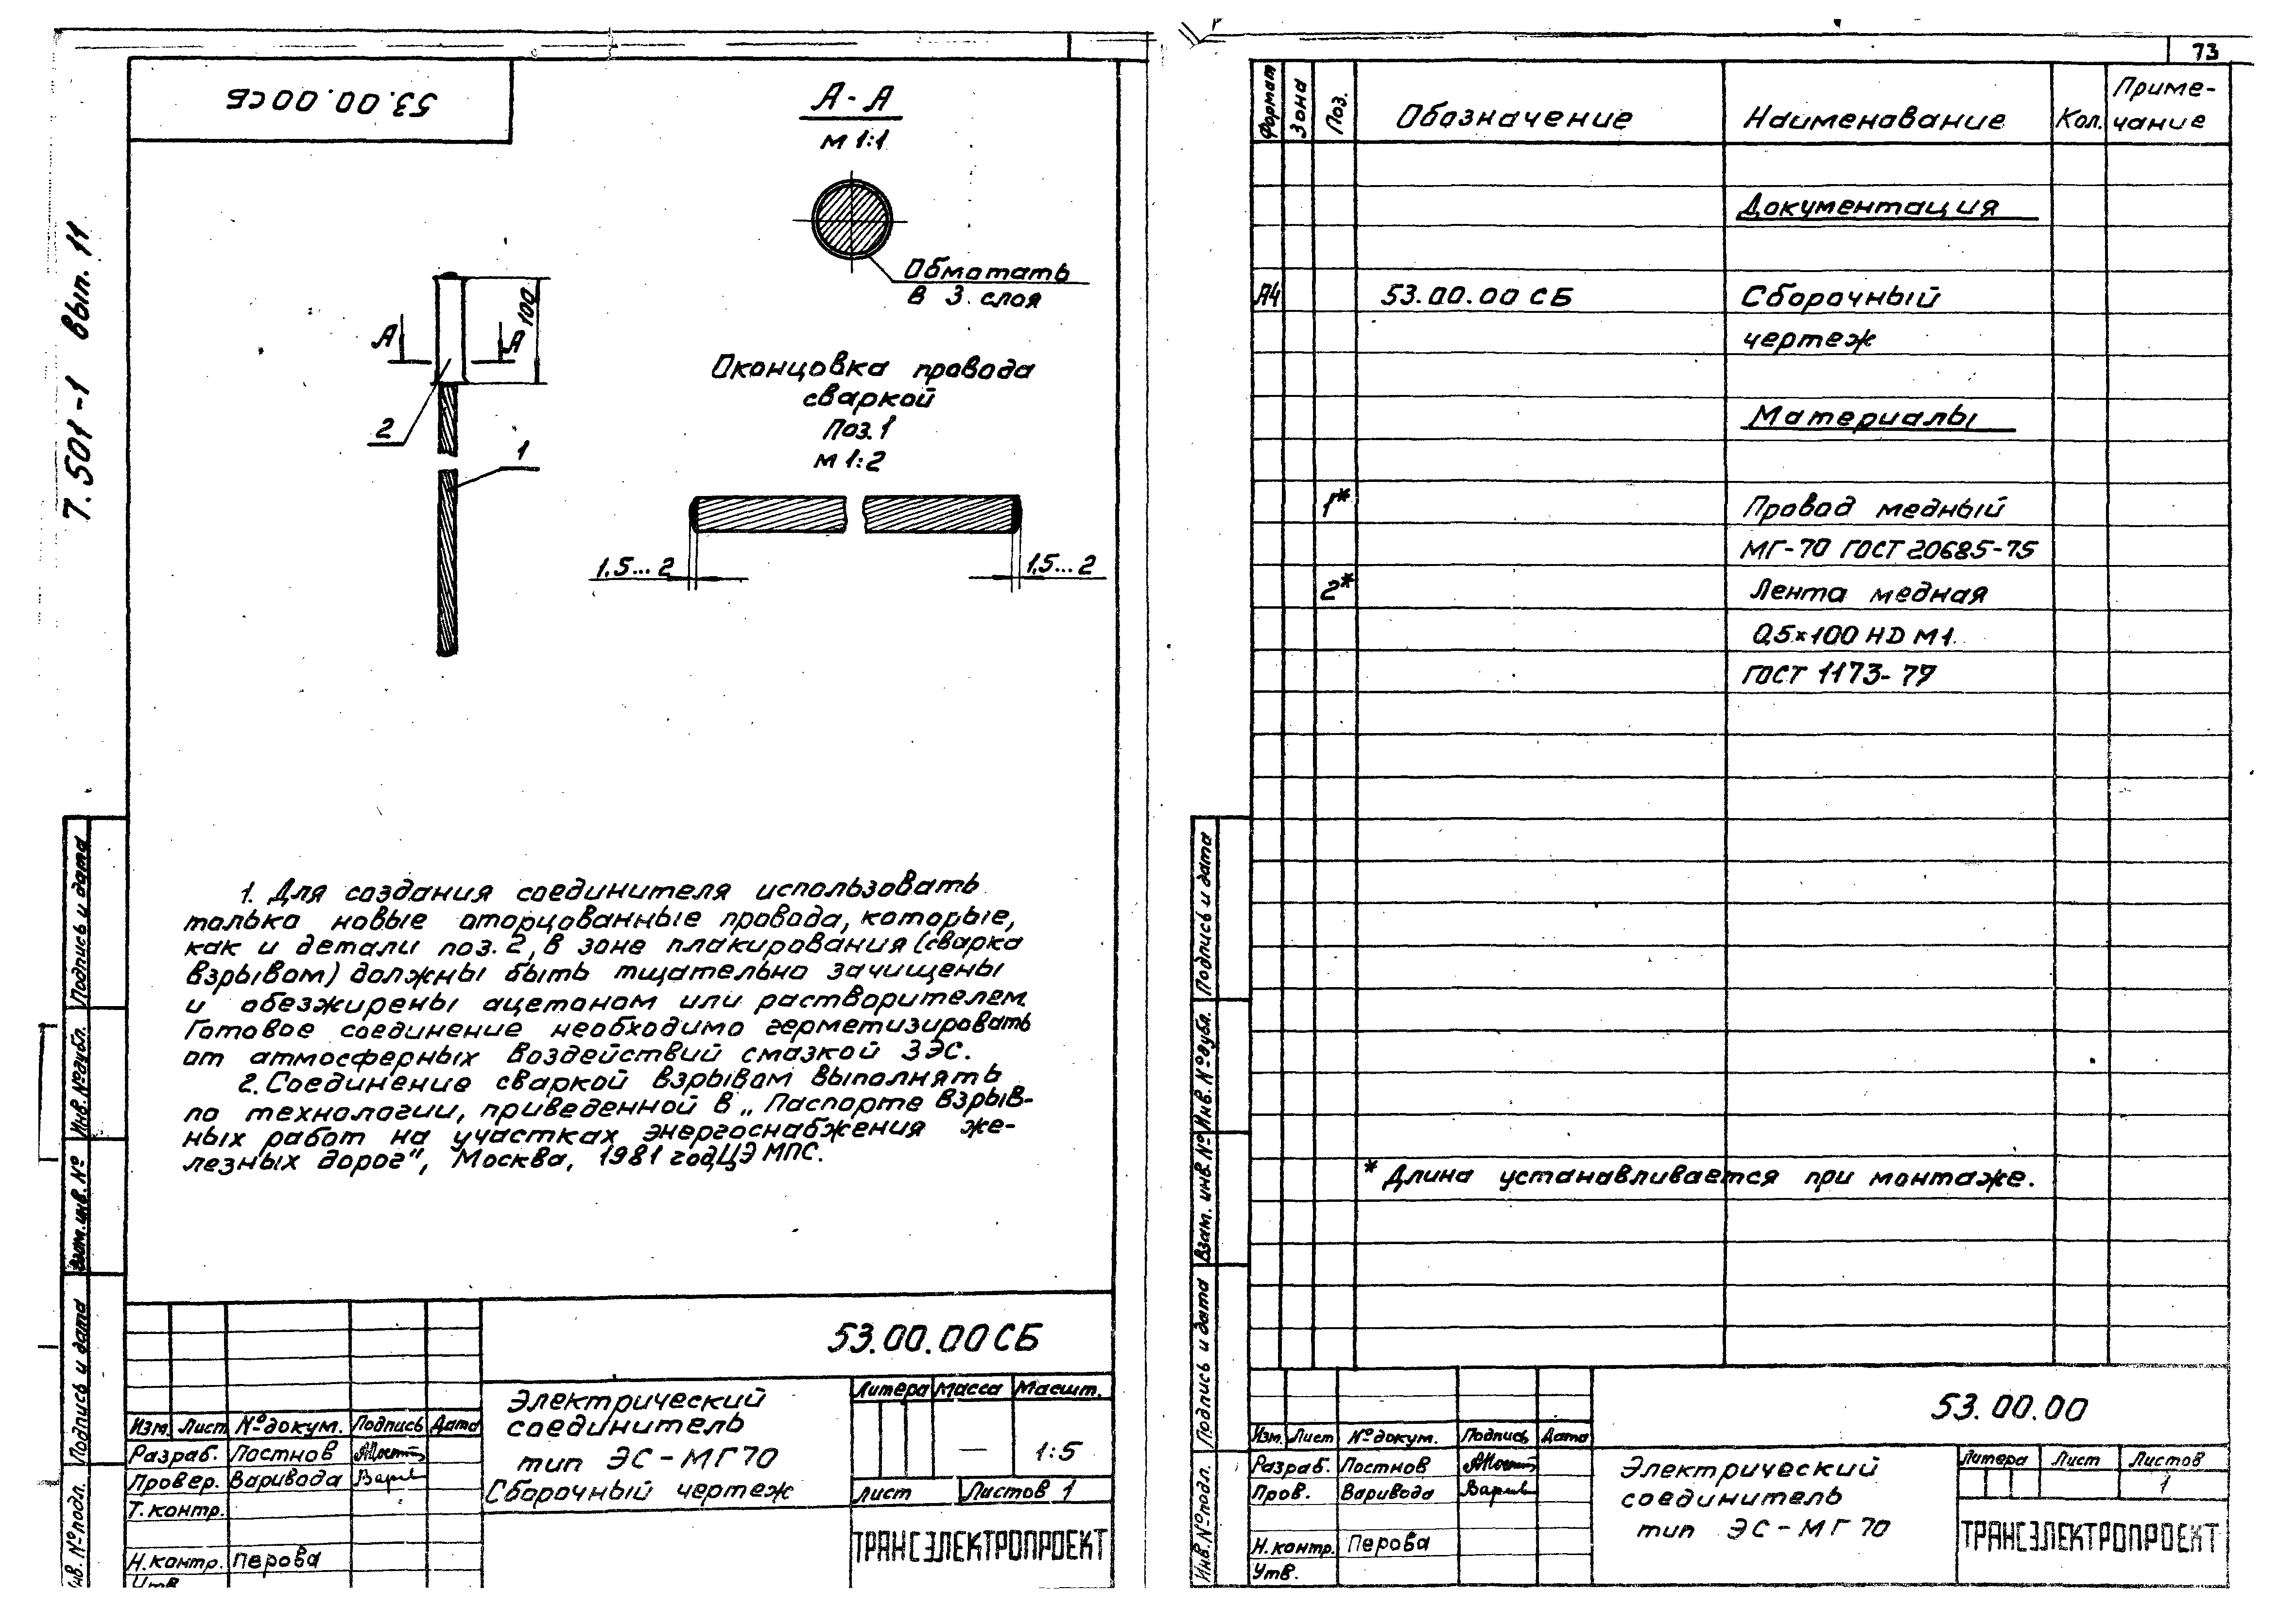 53.00.00СБ
7.501-1 вып. 11
А-А
М 1:1
Обмотать
в 3 слоя
100
А
А
2
1
Оконцовка провода
сваркой
Поз.1
М 1:2
1,5...2
1,5...2
1. Для создания соединителя использовать
только новые оторцованные провода, которые,
как и детали поз. 2, в зоне плакирования (сварка
взрывом) должны быть тщательно зачищены
и обезжирены ацетоном или растворителем.
Готовое соединение необходимо герметизировать
от атмосферных воздействий смазкой ЗЭС.
2. Соединение сваркой взрывом выполнять
по технологии, приведенной в „Паспорте взрыв-
ных работ на участках энергоснабжения же-
лезных дорог", Москва, 1981 год,ЦЭ МПС.
Подпись и дата
Инв.№дубл.
Взам.инв.№
Подпись и дата
Инв.№подл.
53.00.00СБ
Электрический
соединитель
тип ЭС-МГ70
Сборочный чертеж
Литера Масса Масшт.
— 1:5
Лист Листов 1
ТРАНСЭЛЕКТРОПРОЕКТ
Изм. Лист №докум. Подпись Дата
Разраб. Постнов
Провер. Варивода
Т.контр.
Н.контр. Перова
Утв.
73
Формат Зона Поз. Обозначение Наименование Кол. Приме-
чание
Документация
А4 53.00.00 СБ Сборочный
чертеж
Материалы
1* Провод медный
МГ-70 ГОСТ 20685-75
2* Лента медная
0,5×100 НД М1
ГОСТ 1173-77
* Длина устанавливается при монтаже.
Подпись и дата
Инв.№дубл.
Взам. инв.№
Подпись и дата
Инв.№подл.
53.00.00
Электрический
соединитель
тип ЭС-МГ70
Литера Лист Листов
1
ТРАНСЭЛЕКТРОПРОЕКТ
Изм. Лист №докум. Подпись Дата
Разраб. Постнов
Пров. Варивода
Н.контр. Перова
Утв.